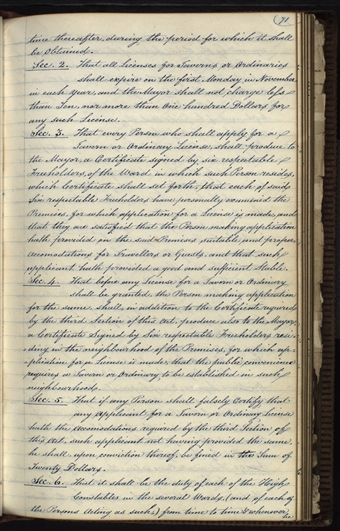 71
time thereafter, during the period for which it shall
be Obtained.
Sec. 2. That all Licenses for Taverns or Ordinaries
shall expire on the first Monday in November
in each year, and the Mayor shall not charge less
than Ten, nor more than One hundred Dollars for
any such License.
Sec. 3. That every Person who shall apply for a
Tavern or Ordinary License, shall produce to
the Mayor, a Certificate signed by six respectable
Freeholders, of the Ward in which such Person resides,
which Certificate shall set forth, that each of said
Six respectable Freeholders have personally examined the
Premises, for which application for a License is made, and
that they are satisfied that the Person making application
hath provided on the said Premises suitable and proper
accomodations for Travellers or Guests, and that such
applicant hath provided a good and sufficient Stable.
Sec. 4. That before any License for a Tavern or Ordinary
shall be granted, the Person making application
for the same, shall, in addition to the Certificate required
by the third Section of this Act, produce also to the Mayor,
a Certificate Signed by Six respectable Freeholders resi-
ding in the neighbourhood of the Premises, for which ap-
plication for a License is made, that the public convenience
requires a Tavern or Ordinary to be established in such
neighbourhood.
Sec. 5. That if any Person shall falsely Certify that
any applicant for a Tavern or Ordinary License
hath the Accomodations required by the third Section of
this Act, such applicant not having provided the same,
he shall upon conviction thereof, be fined in the Sum of
Twenty Dollars.
Sec. 6. That it shall be the duty of each of the High
Constables in the several Wards, (and of each of
the Persons Acting as such,) from time to time & whenever
he